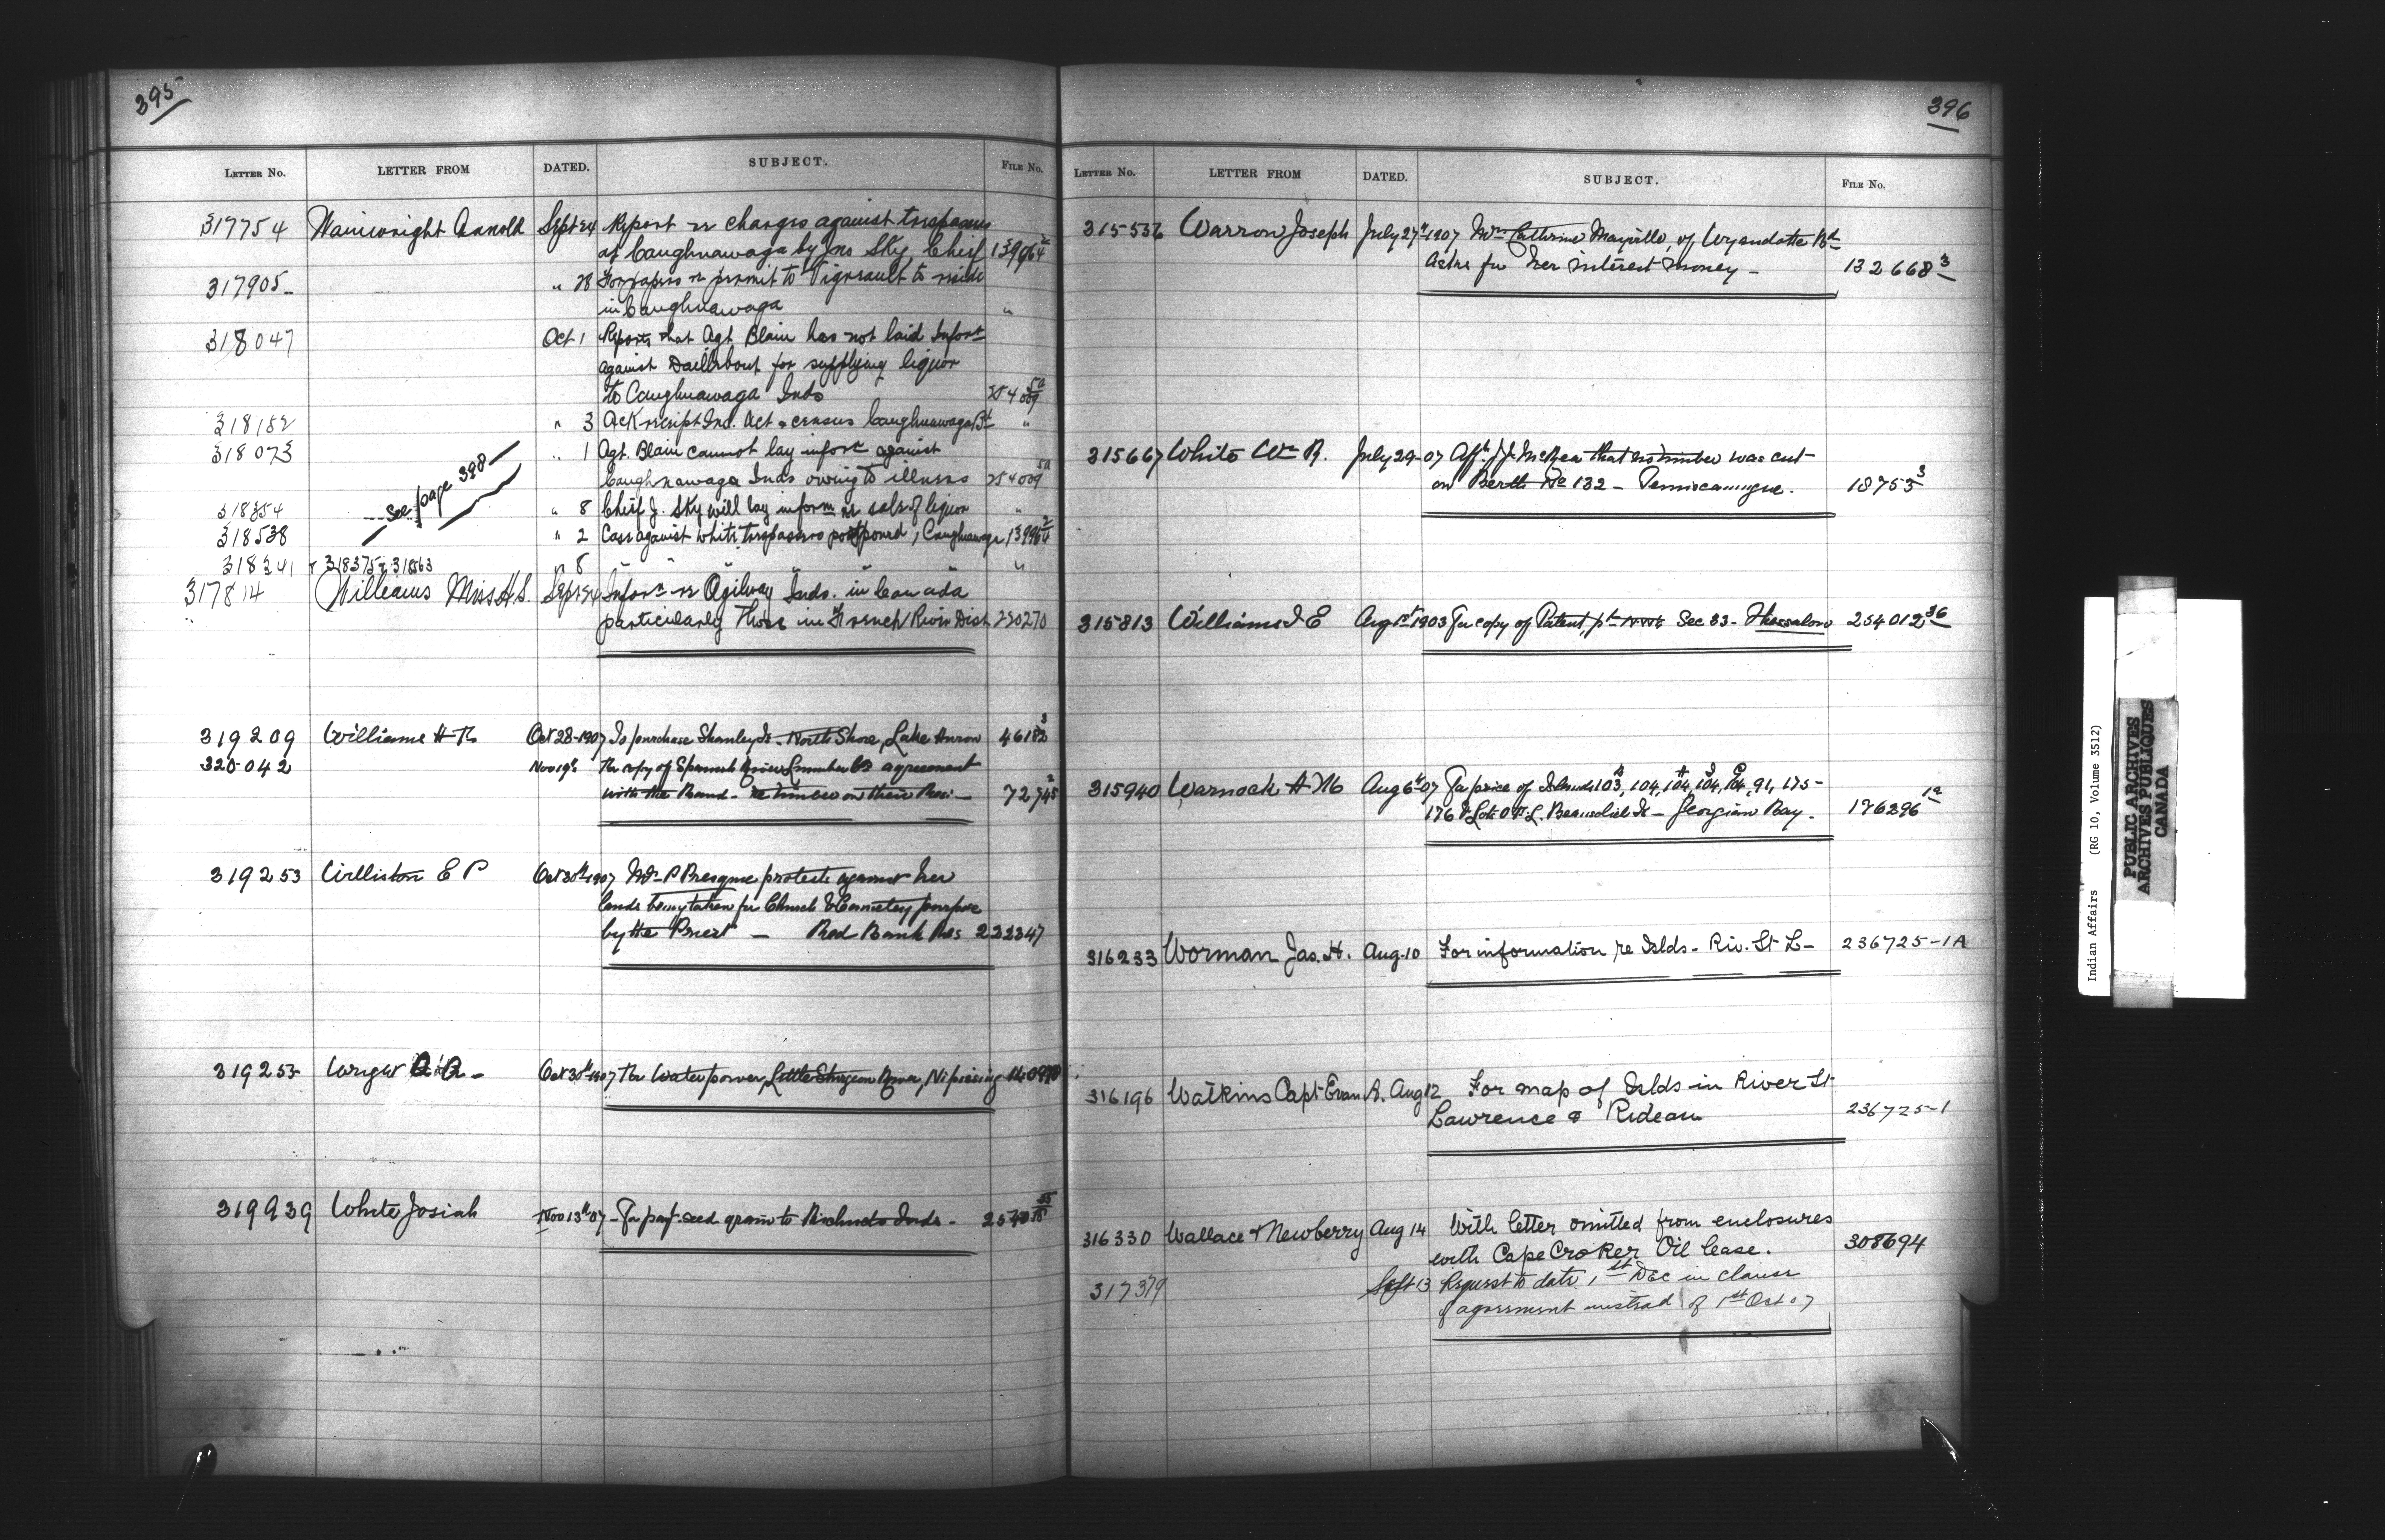 395
LETTER NO. LETTER FROM DATED. SUBJECT. FILE NO.
317754 Wainwright Arnold Sept 24 Report re charges against trespassers
at Caughnawaga by Jno Sky, Chief
317905 " 28 For papers re permit to Vigneault to reside
in Caughnawaga "
318047 Oct 1 Reports that Agt Blain has not laid Infort
against for supplying liquor
to Caughnawaga Inds
318152 " 3 Ack receipt Ind. Act & census Caughnawaga Bd "
318073 " 1 Agt. Blain cannot lay infort against
Caughnawaga Inds owing to illness
See page 398
318354 " 8 Chief J. Sky will lay inform re sale of liquor "
318538 " 2 Case against white trespassers postponed, Caughnawaga
318341 " 8 " " " "
317814 Williams Miss H.S. Sept 24 Infort re Ogilway Inds. in Canada
particularly those in French River Dist 220270
319209 Williams H R Oct 28-1907 To purchase Stanley Is. North Shore, Lake Huron 46182 3
320042 Nov 19th Re copy of Spanish River Lumber Co agreement
with the Band - re timber on their Res - 72745 2
319253 Williston E P Oct 30th 1907 Mrs P Presque protests against her
lands being taken for Church & Cemetery purpose
by the Priest - Red Bank Res 222347
319255 Oct 30th 1907 Re Water power, Little Sturgeon River, Nipissing
319939 White Josiah Nov 13th 07 - For payt. seed grain to Inds -
396
LETTER NO. LETTER FROM DATED. SUBJECT. FILE NO.
315536 Warron Joseph July 27th 1907 Mrs Cathrine Mayville, of Wyandotte Bd
Asks for her interest money - 132668 3
315667 White Wm R. July 29-07 Afft J.J. McRea that no timber was cut
on Berth No 132 - Temiscamingue. 18753 3
315813 Williams J E Aug 1st 1903 For copy of Patent, pt Sec 33 - Thessalon 254012 36
315940 Warnock A M6 Aug 6th 07 For price of Islands 103 B, 104, 104 A, 104 I, 104 C, 91, 175-
176 & Lots Beausoliel Is - Georgian Bay. 176296 12
316233 Worman Jas. H. Aug. 10 For information re Islds - Riv. St L- 236725-1A
316196 Watkins Capt Evan R. Aug 12 For map of Islds in River St
Lawrence & Rideau 236725-1
316330 Wallace & Newberry Aug 14 With letter omitted from enclosures
with Cape Croker Oil lease. 308694
317379 Sept 13 Request to date 1st Dec in clause
of agreement instead of 1st Oct 07
Indian Affairs (RG 10, Volume 3512)
PUBLIC ARCHIVES
ARCHIVES PUBLIQUES
CANADA